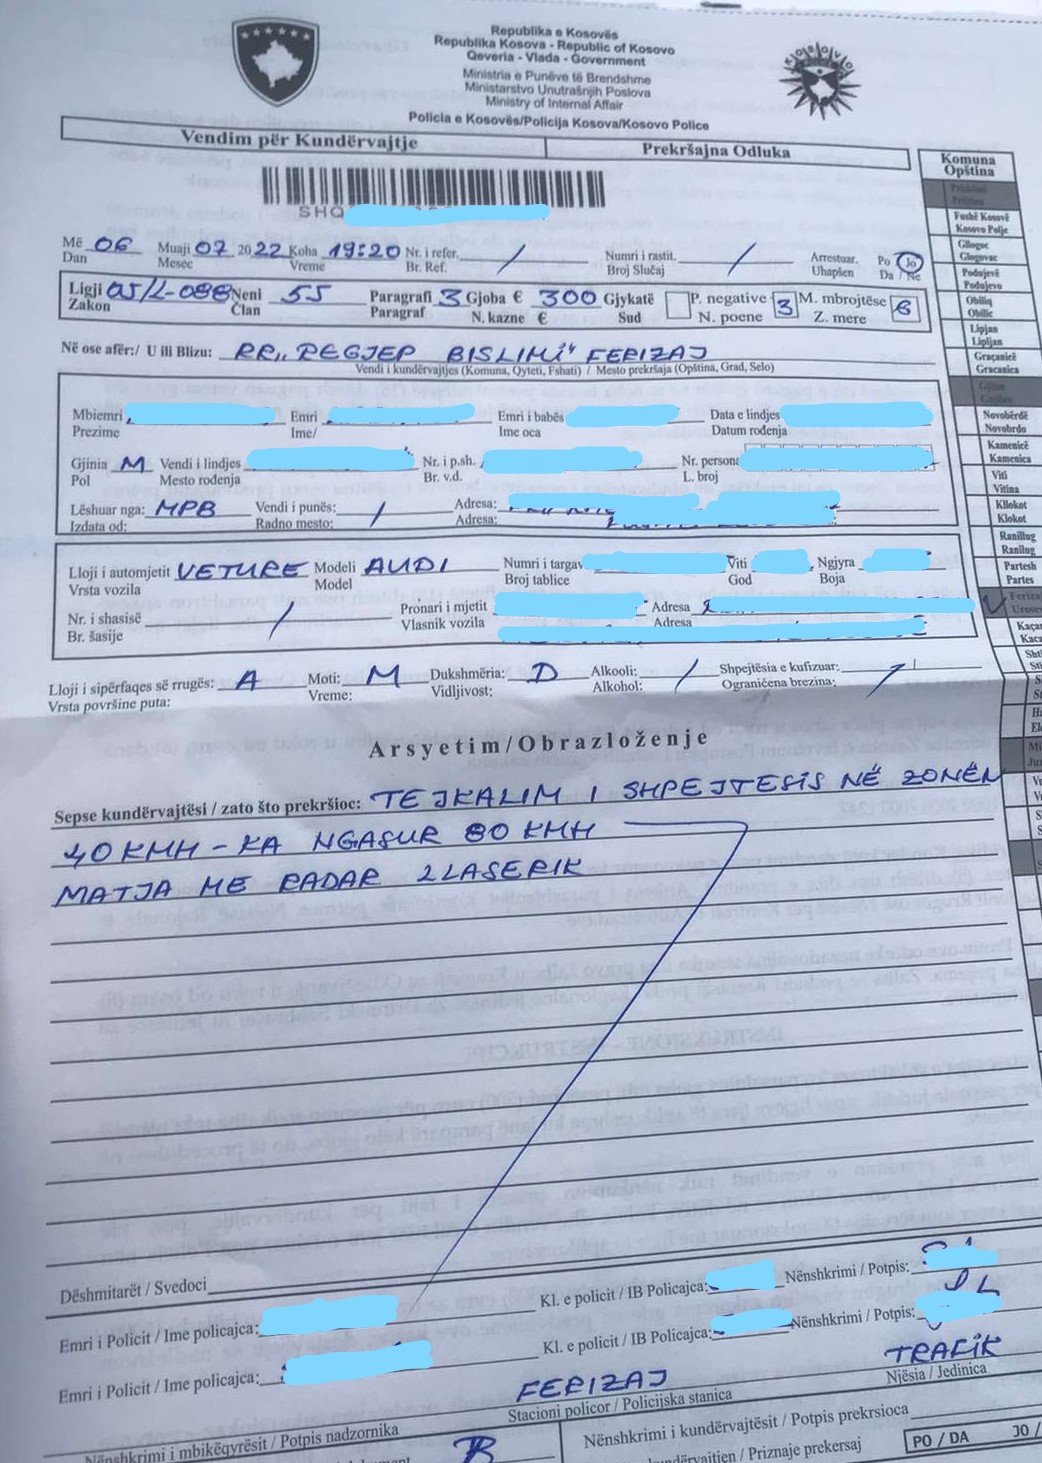 Republika e Kosovës
Republika Kosova - Republic of Kosovo
Qeveria - Vlada - Government
Ministria e Punëve të Brendshme
Ministarstvo Unutrašnjih Poslova
Ministry of Internal Affair
Policia e Kosovës/Policija Kosova/Kosovo Police
Vendim për Kundërvajtje Prekršajna Odluka
Komuna
Opština
SHQ
Fushë Kosovë
Kosovo Polje
Gllogoc
Glogovac
Podujevë
Podujevo
Obiliq
Obilic
Lipjan
Lipljan
Graçanicë
Gracanica
Novobërdë
Novobrdo
Kamenicë
Kamenica
Viti
Vitina
Kllokot
Klokot
Ranillug
Ranilug
Partesh
Partes
Më 06 Muaji 07 2022 Koha 19:20 Nr. i refer. / Numri i rastit. / Arrestuar. Po Jo
Dan Mesec Vreme Br. Ref. Broj Slučaj Uhapšen Da / Ne
Ligji 05/L-088 Neni 55 Paragrafi 3 Gjoba € 300 Gjykatë P. negative 3 M. mbrojtëse 6
Zakon Član Paragraf N. kazne € Sud N. poene Z. mere
Në ose afër:/ U ili Blizu: RR,, REGJEP BISLIMI" FERIZAJ
Vendi i kundërvajtjes (Komuna, Qyteti, Fshati) / Mesto prekršaja (Opština, Grad, Selo)
Mbiemri Emri Emri i babës Data e lindjes
Prezime Ime/ Ime oca Datum rođenja
Gjinia M Vendi i lindjes Nr. i p.sh. Nr. persona
Pol Mesto rođenja Br. v.d. L. broj
Lëshuar nga: MPB Vendi i punës: / Adresa:
Izdata od: Radno mesto: Adresa:
Lloji i automjetit VETURE Modeli AUDI Numri i targav Viti Ngjyra
Vrsta vozila Model Broj tablice God Boja
Nr. i shasisë / Pronari i mjetit Adresa
Br. šasije Vlasnik vozila Adresa
Lloji i sipërfaqes së rrugës: A Moti: M Dukshmëria: D Alkooli: / Shpejtësia e kufizuar: /
Vrsta površine puta: Vreme: Vidljivost: Alkohol: Ograničena brezina:
Arsyetim/Obrazloženje
Sepse kundërvajtësi / zato što prekršioc: TEJKALIM I SHPEJTESIS NË ZONËN
40 KMH - KA NGASUR 80 KMH
MATJA ME RADAR LLASERIK
Dëshmitarët / Svedoci
Emri i Policit / Ime policajca: Kl. e policit / IB Policajca: Nënshkrimi / Potpis:
Emri i Policit / Ime policajca: Kl. e policit / IB Policajca: Nënshkrimi / Potpis:
FERIZAJ TRAFIK
Stacioni policor / Policijska stanica Njësia / Jedinica
Nënshkrimi i mbikëqyrësit / Potpis nadzornika Nënshkrimi i kundërvajtësit / Potpis prekrsioca
/ Priznaje prekersaj PO / DA JO /